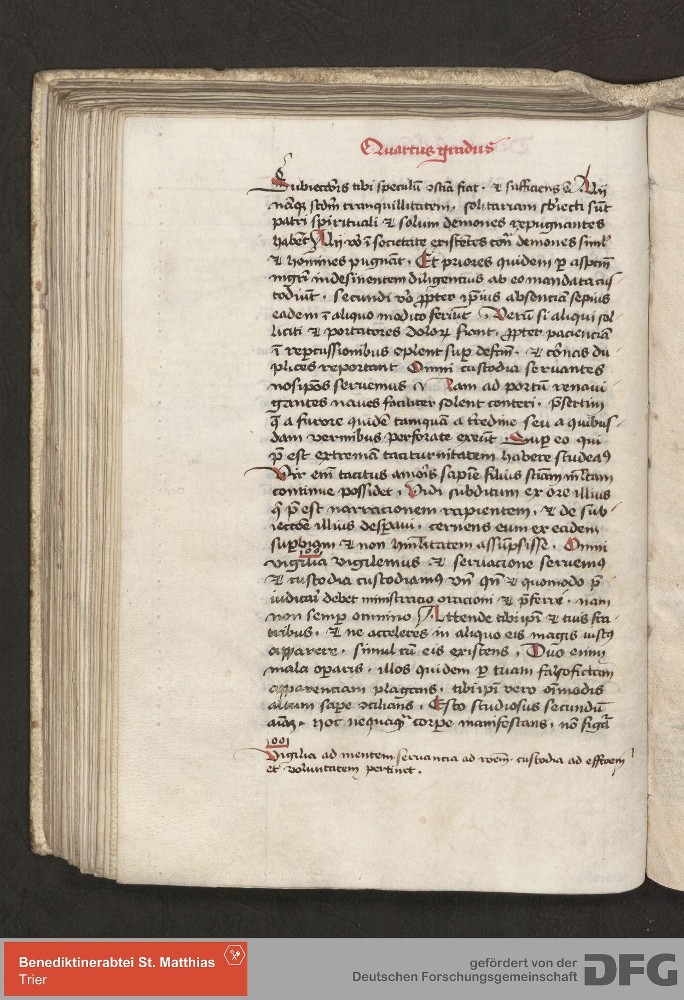 Quartus gradus
Subiectōis tibi speculū ꝯsciā fiat · ⁊ sufficiens ē Alij
nāqꝫ scdm tranquillitatem · solitariam sb̄iecti sūt
patri spirituali ⁊ solum demones repugnantes
habēt Alij vo᷒ ī societate existētes con̄ demones siml᷒
⁊ homines pugnāt · Et priores quidem ꝑ aspcm̄
mgrī indesinentem diligentius ab eo mandata cus
todiūt · secundi vo᷒ ꝓpter ip̄ius absenciā sepius
eadem ī aliquo modico feriūt · Verū si aliqui sol
liciti ⁊ portitores dolorꝝ fiant · ꝓpter pacienciā
ī repcussionibus eplent sup defcm̄ · ⁊ cōnas du
plices reportant Omni custodia servantes
nosip̄os servemus Nam ad portū renavi
gantes naves faciliter solent conteri · p̄sertim
q̄ a furore quidē tamquā a tredine seu a quibus
dam vermibus perforate exeūt Suꝑ eo qui
p̄ est extremam taciturnitatem habere studeaꝰ
Vir em̄ tacitus amoīs sapiē filius sciam ml̄tam
continue possidet · Vidi subditum ex ore illius
q̄ p̄ est narracionem rapientem · ⁊ de sub
iectōe illius desꝑavi · cernens eum ex eadem
suꝑbiam ⁊ non huīlitatem assūpsisse · Omni
vigilia vigilemus ⁊ servacione servemꝰ
⁊ custodia custodiamꝰ vn̄ qn̄ ⁊ quomodo p̄
iudicari debet ministracio oracioni ⁊ p̄ferre · nam
non semꝑ omnino Attende tibi ip̄i ⁊ tuis fra
tribus · ⁊ ne acceleres in aliquo eis magis iustꝰ
apparere · simul cū eis existens · Duo enim
mala oꝑaris · illos quidem ꝑ tuam falso fictam
apparenciam plagans · tibi ip̄i vero oīmodis
altum sapere ꝯcilians · Esto studiosus secundū
aīaꝫ · hoc nequaqᷓ corꝑe manifestans · nō figᷓ
Vigilia ad mentem servancia ad roēm · custodia ad effcōem
et voluntatem pertinet ·
Benediktinerabtei St. Matthias
Trier
gefördert von der
Deutschen Forschungsgemeinschaft DFG